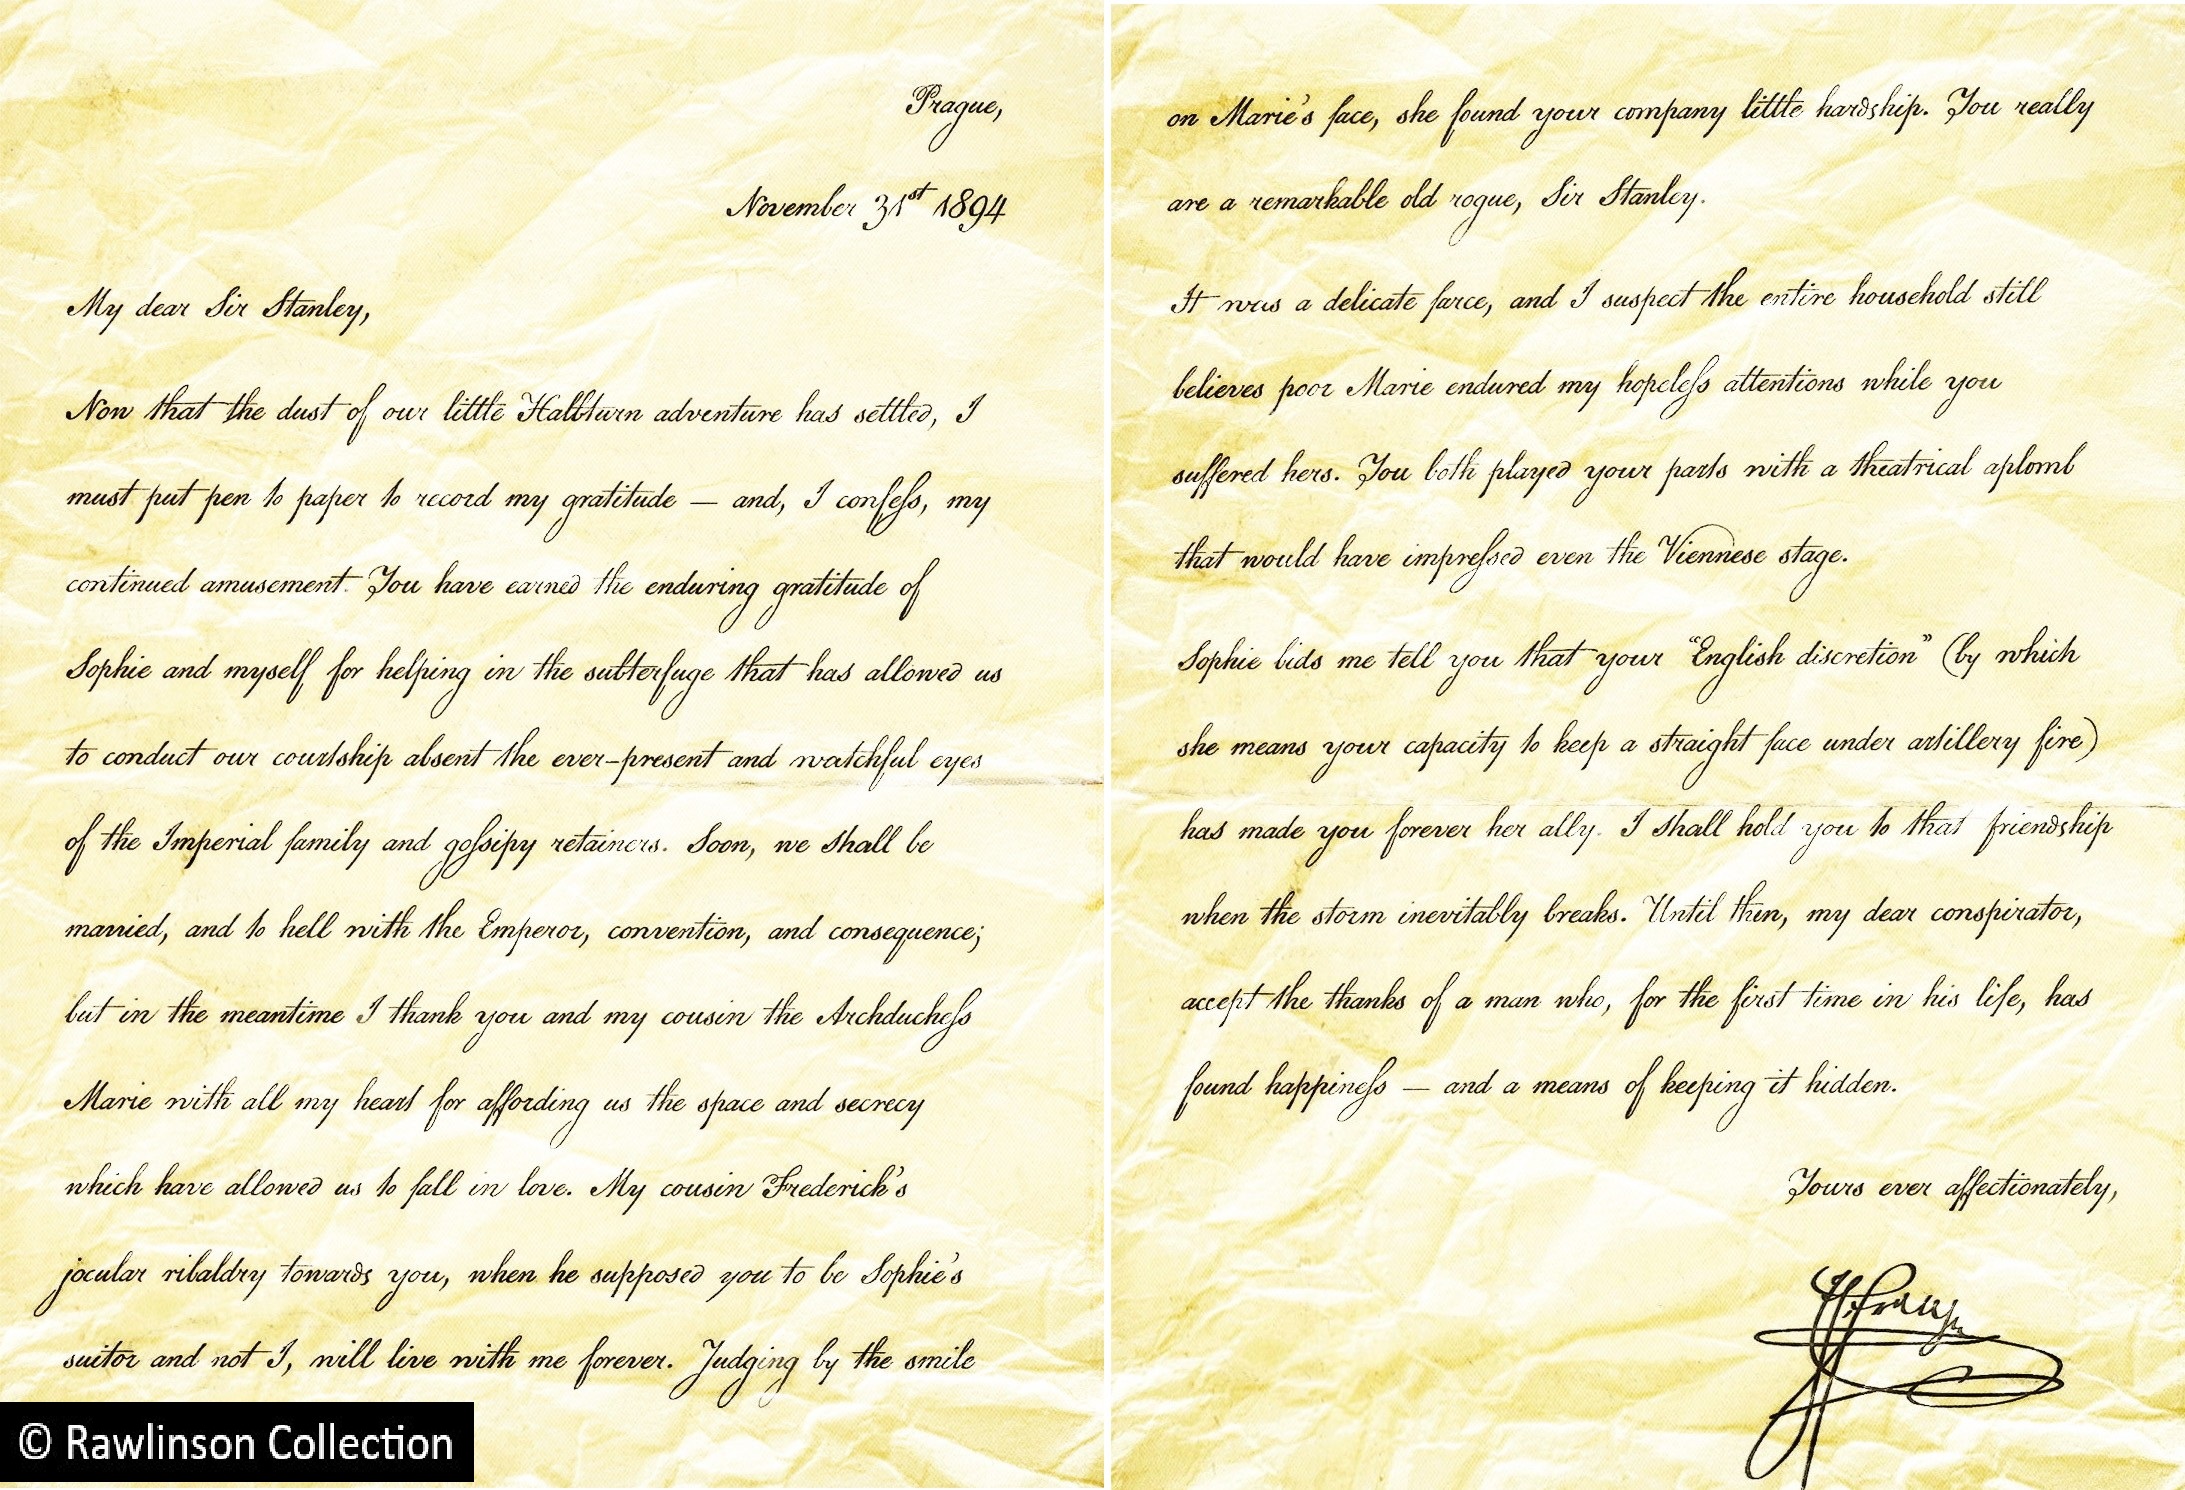 Prague,
November 31st 1894
My dear Sir Stanley,
Now that the dust of our little Halbturn adventure has settled, I
must put pen to paper to record my gratitude — and, I confeſs, my
continued amusement. You have earned the enduring gratitude of
Sophie and myself for helping in the subterfuge that has allowed us
to conduct our courtship absent the ever-present and watchful eyes
of the Imperial family and goſsipy retainers. Soon, we shall be
married, and to hell with the Emperor, convention, and consequence;
but in the meantime I thank you and my cousin the Archducheſs
Marie with all my heart for affording us the space and secrecy
which have allowed us to fall in love. My cousin Frederick's
jocular ribaldry towards you, when he supposed you to be Sophie's
suitor and not I, will live with me forever. Judging by the smile
© Rawlinson Collection
on Marie's face, she found your company little hardship. You really
are a remarkable old rogue, Sir Stanley.
It was a delicate farce, and I suspect the entire household still
believes poor Marie endured my hopeleſs attentions while you
suffered hers. You both played your parts with a theatrical aplomb
that would have impreſsed even the Viennese stage.
Sophie bids me tell you that your “English discretion” (by which
she means your capacity to keep a straight face under artillery fire)
has made you forever her ally. I shall hold you to that friendship
when the storm inevitably breaks. Until then, my dear conspirator,
accept the thanks of a man who, for the first time in his life, has
found happineſs — and a means of keeping it hidden.
Yours ever affectionately,